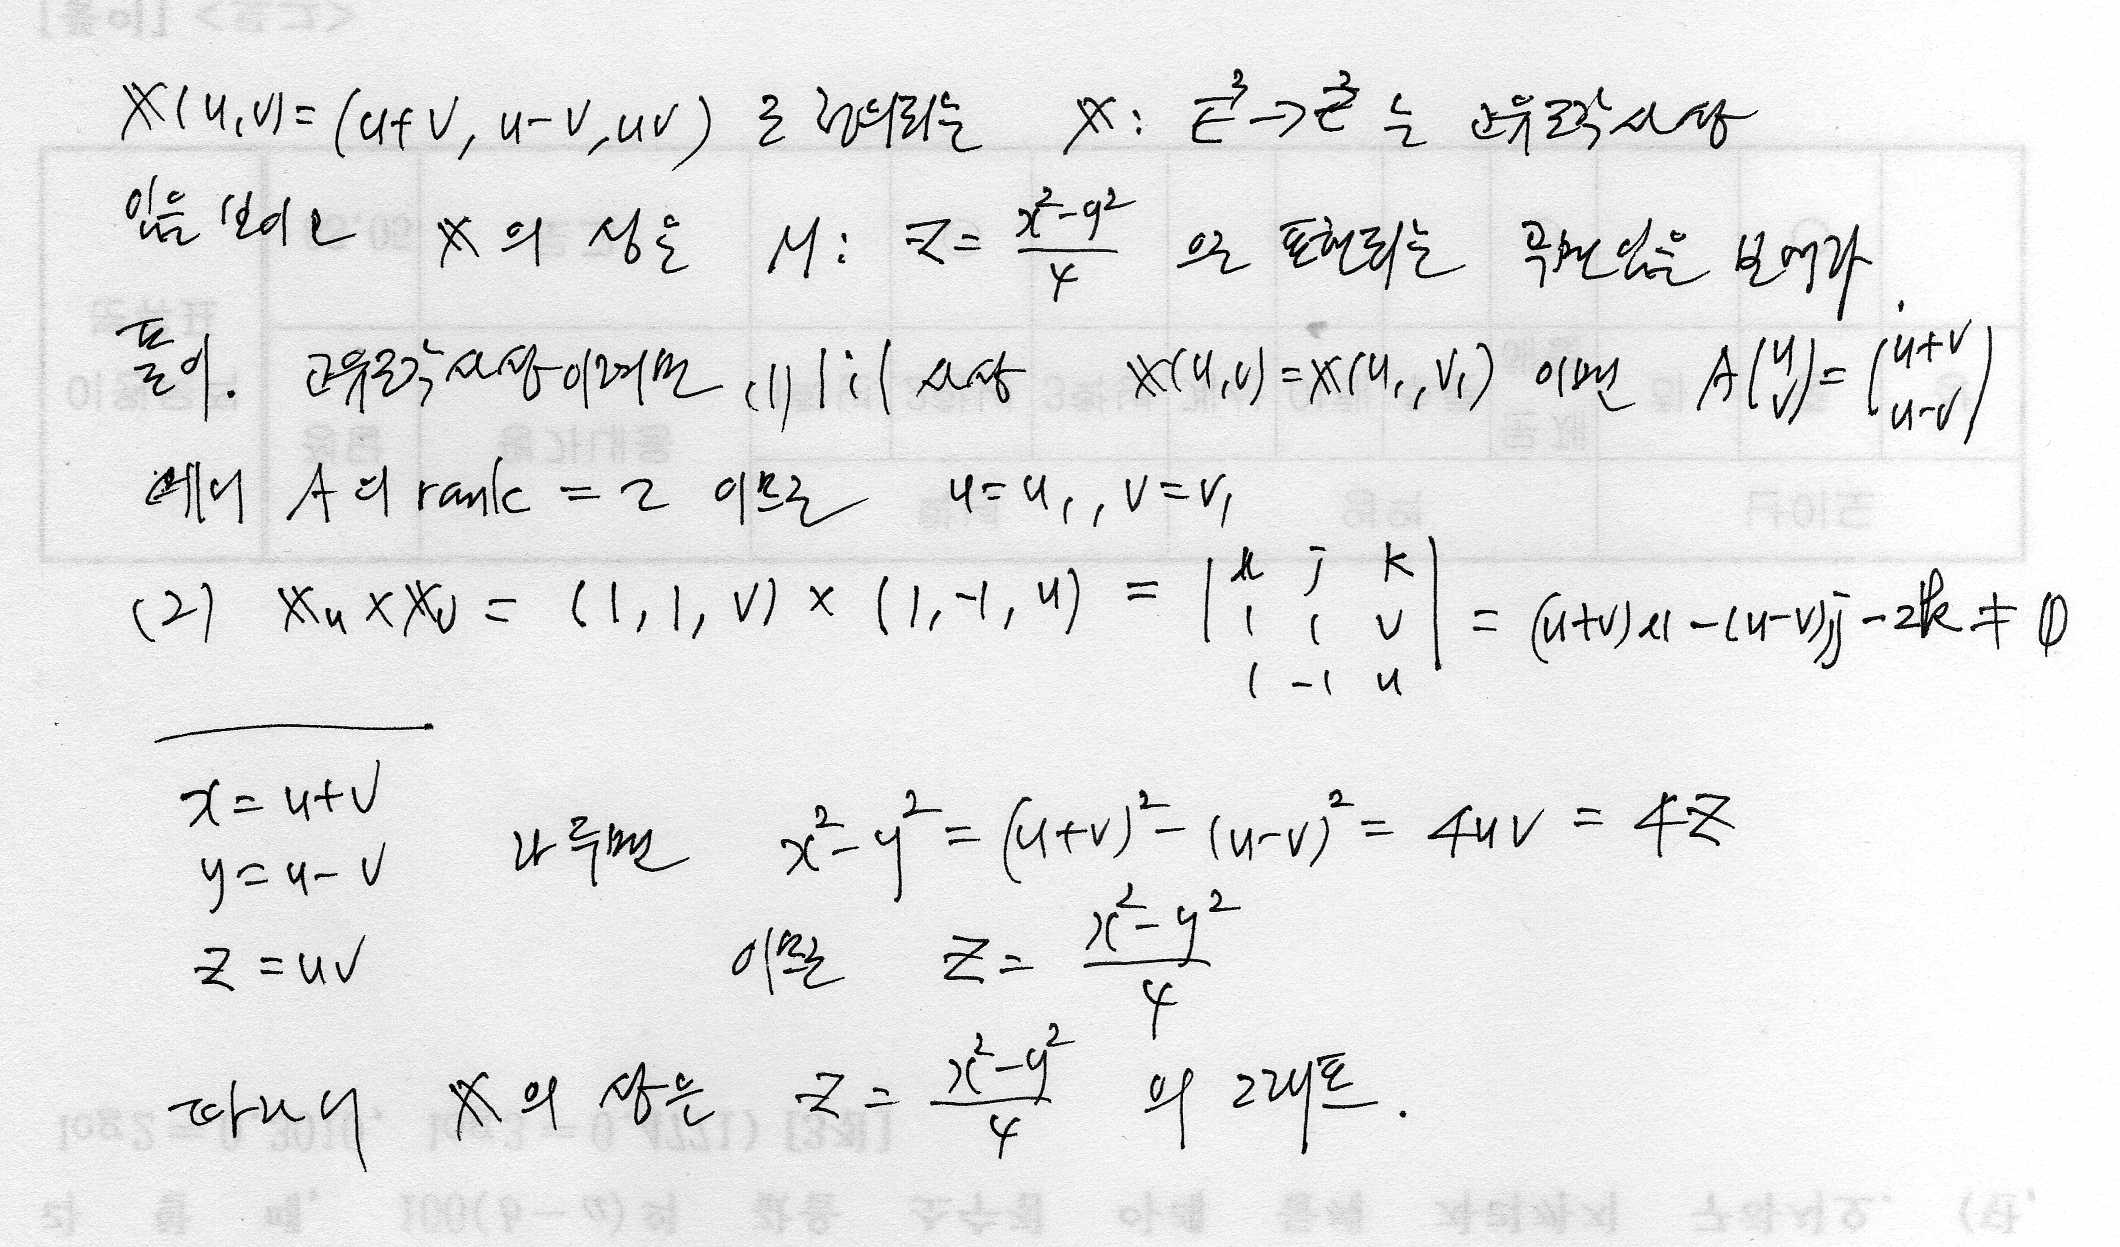 X(u,v)=(u+v, u-v, uv) 로 정의되는 X: E²→E³ 는 고유조각사상
임을 보이고 X의 상은 M: z= (x²-y²)/4 으로 표현되는 곡면임을 보여라.
풀이. 고유조각사상이려면 (1) 1:1 사상 X(u,v)=X(u₁,v₁) 이면 A(u v)=(u+v u-v)
에서 A의 rank = 2 이므로 u=u₁, v=v₁
(2) Xu×Xv = (1,1,v)×(1,-1,u) = |i j k 1 1 v 1 -1 u| = (u+v)i-(u-v)j-2k ≠ 0
x=u+v
y=u-v 라 두면 x²-y²=(u+v)²-(u-v)²= 4uv = 4z
z=uv 이므로 z= (x²-y²)/4
따라서 X의 상은 z= (x²-y²)/4 의 그래프.